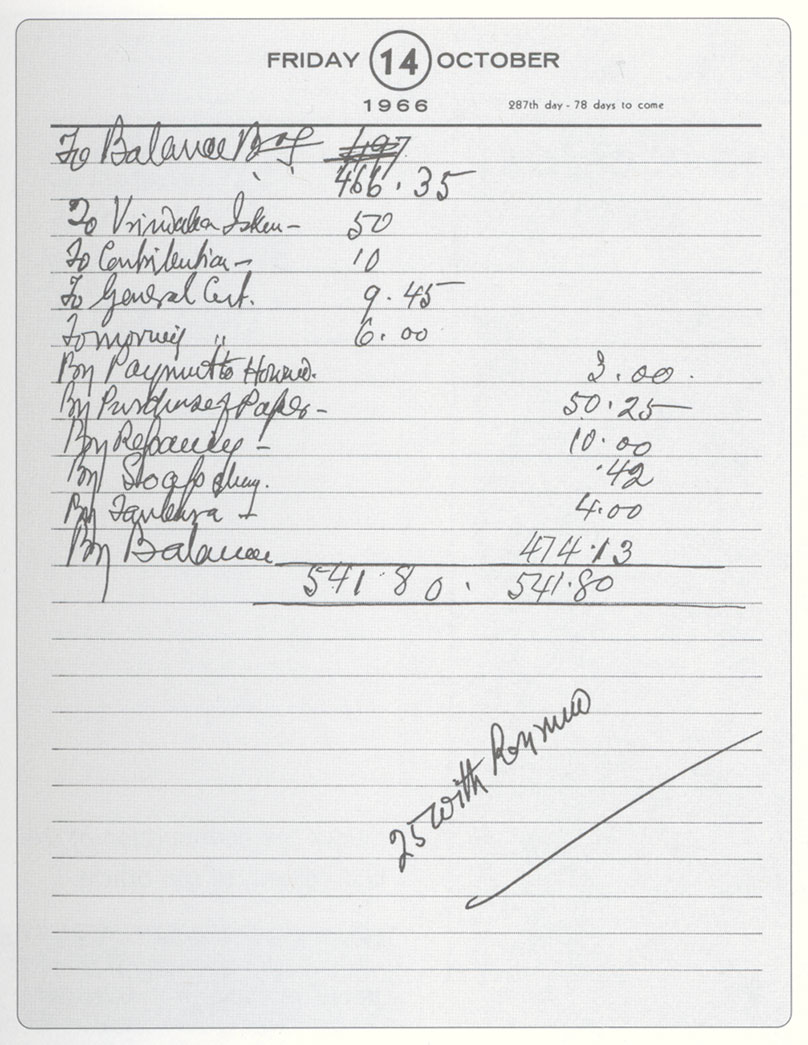 FRIDAY 14 OCTOBER
1966 287th day - 78 days to come
To Balance
466.35
To 50
To Contribution - 10
To General Cont. 9.45
To morning " 6.00
By Payment to Howard. 3.00.
By Purchase of Paper - 50.25
By Repairing - 10.00
By .42
By Tanbura - 4.00
By Balance 474.13
541.80. 541.80
25 with Roymuo